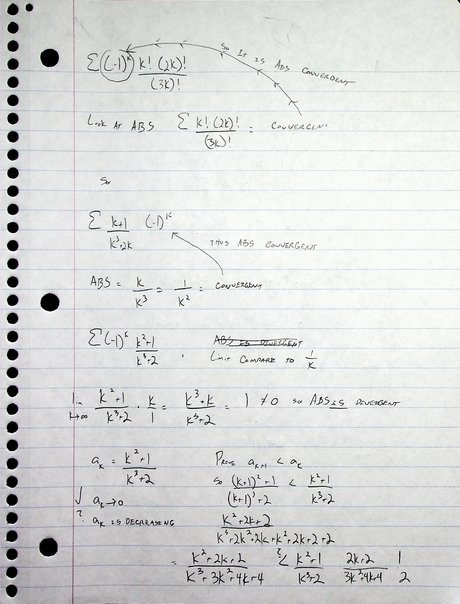 so It is ABS CONVERGENT
Σ (-1)^k k! (2k)! / (3k)!
Look At ABS Σ k! (2k)! / (3k)! = CONVERGENT
so
Σ k+1 / k³+2k (-1)^k
THUS ABS CONVERGENT
ABS = k / k³ = 1 / k² = CONVERGENT
Σ (-1)^k k²+1 / k³+2 . ABS IS DIVERGENT
Limit COMPARE TO 1 / k
lim k→∞ k²+1 / k³+2 · k / 1 = k³+k / k³+2 = 1 ≠ 0 so ABS IS DIVERGENT
a_k = k²+1 / k³+2 Prove a_k+1 < a_k
√ a_k → 0 so (k+1)²+1 / (k+1)³+2 < k²+1 / k³+2
? a_k IS DECREASING k²+2k+2 / k³+2k²+2k+k²+2k+2
= k²+2k+2 / k³+3k²+4k+4 ?< k²+1 / k³+2 2k+2 / 3k²+4k+4 1 / 2